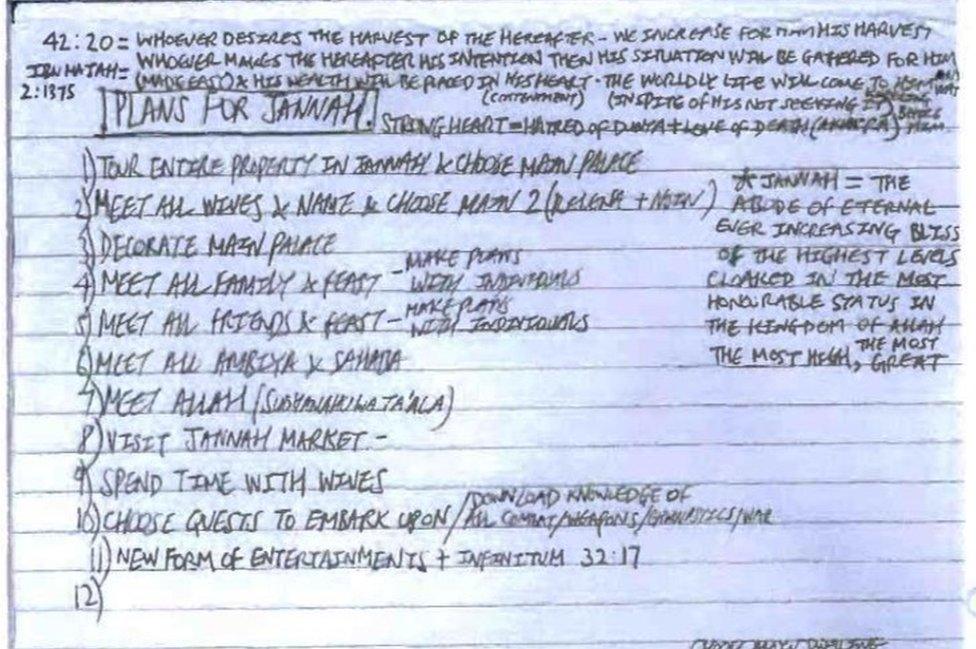 42:20 = WHOEVER DESIRES THE HARVEST OF THE HEREAFTER - WE INCREASE FOR HIM HIS HARVEST
IBN MAJAH = WHOEVER MAKES THE HEREAFTER HIS INTENTION THEN HIS SITUATION WILL BE GATHERED FOR HIM
2:1375 (MADE EASY) & HIS WEALTH WILL BE PLACED IN HIS HEART - THE WORLDLY LIFE WILL COME TO HIM
(CONTENTMENT) (IN SPITE OF HIS NOT SEEKING IT)
PLANS FOR JANNAH.
STRONG HEART = HATRED OF DUNYA + LOVE OF DEATH
1) TOUR ENTIRE PROPERTY IN JANNAH & CHOOSE MAIN PALACE
2) MEET ALL WIVES & NAME & CHOOSE MAIN 2
3) DECORATE MAIN PALACE
4) MEET ALL FAMILY & FEAST - MAKE PLANS WITH INDIVIDUALS
5) MEET ALL FRIENDS & FEAST - MAKE PLANS WITH INDIVIDUALS
6) MEET ALL AMBIYA & SAHABA
7) MEET ALLAH (SUBHANAHU WA TA'ALA)
8) VISIT JANNAH MARKET -
9) SPEND TIME WITH WIVES
10) CHOOSE QUESTS TO EMBARK UPON / DOWNLOAD KNOWLEDGE OF ALL COMBAT/WEAPONS/GYMNASTICS/WAR
11) NEW FORM OF ENTERTAINMENTS + INFINITUM 32:17
12)
* JANNAH = THE
ABODE OF ETERNAL
EVER INCREASING BLISS
OF THE HIGHEST LEVELS
CLOAKED IN THE MOST
HONOURABLE STATUS IN
THE KINGDOM OF ALLAH
THE MOST HIGH, THE MOST GREAT